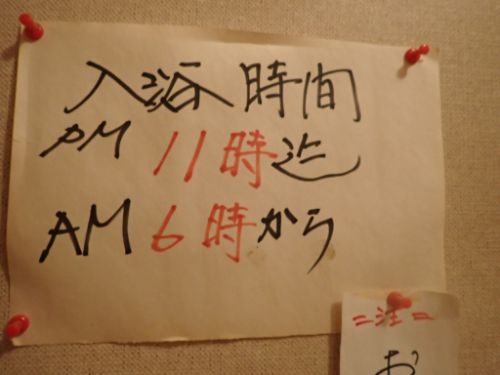 入浴時間
PM 11時迄
AM 6時から
=注=
お